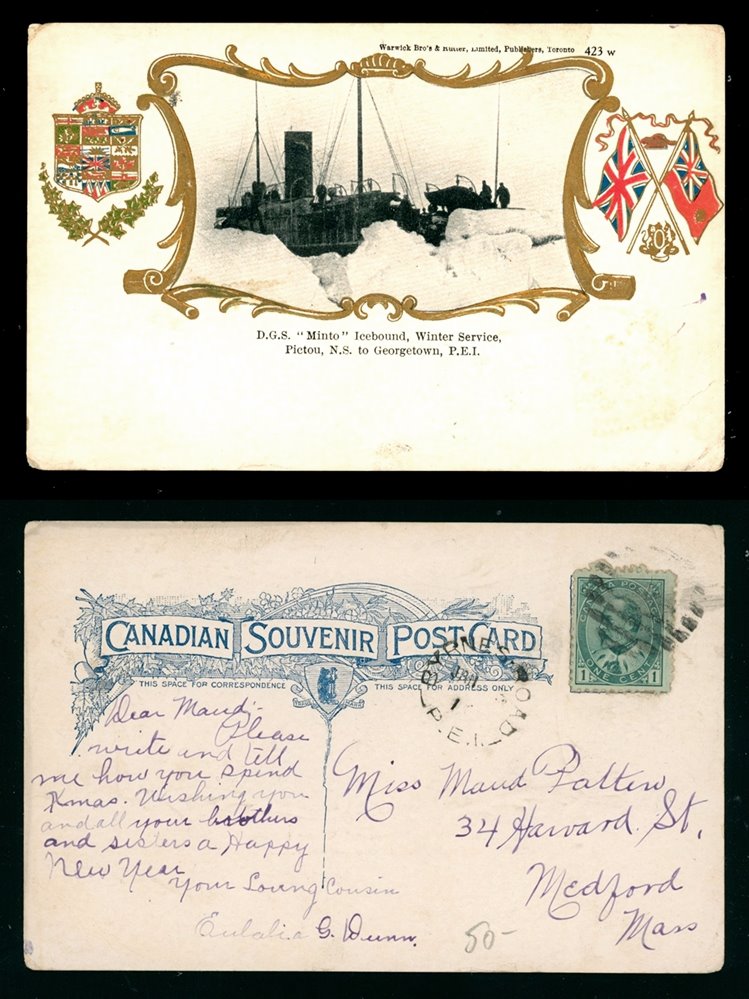 Warwick Bro's & Rutter, Limited, Publishers, Toronto 423 w
D.G.S. "Minto" Icebound, Winter Service,
Pictou, N.S. to Georgetown, P.E.I.
CANADIAN SOUVENIR POST CARD
THIS SPACE FOR CORRESPONDENCE
THIS SPACE FOR ADDRESS ONLY
CANADA POSTAGE
1 ONE CENT 1
BYRNES ROAD
1
P.E.I.
Dear Maud:-
Please
write and tell
me how you spend
Xmas. Wishing you
and all your brothers
and sisters a Happy
New Year
Your Loving Cousin
Eulalia G. Dunn.
Miss Maud Patten
34 Harvard St,
Medford
Mass
50-